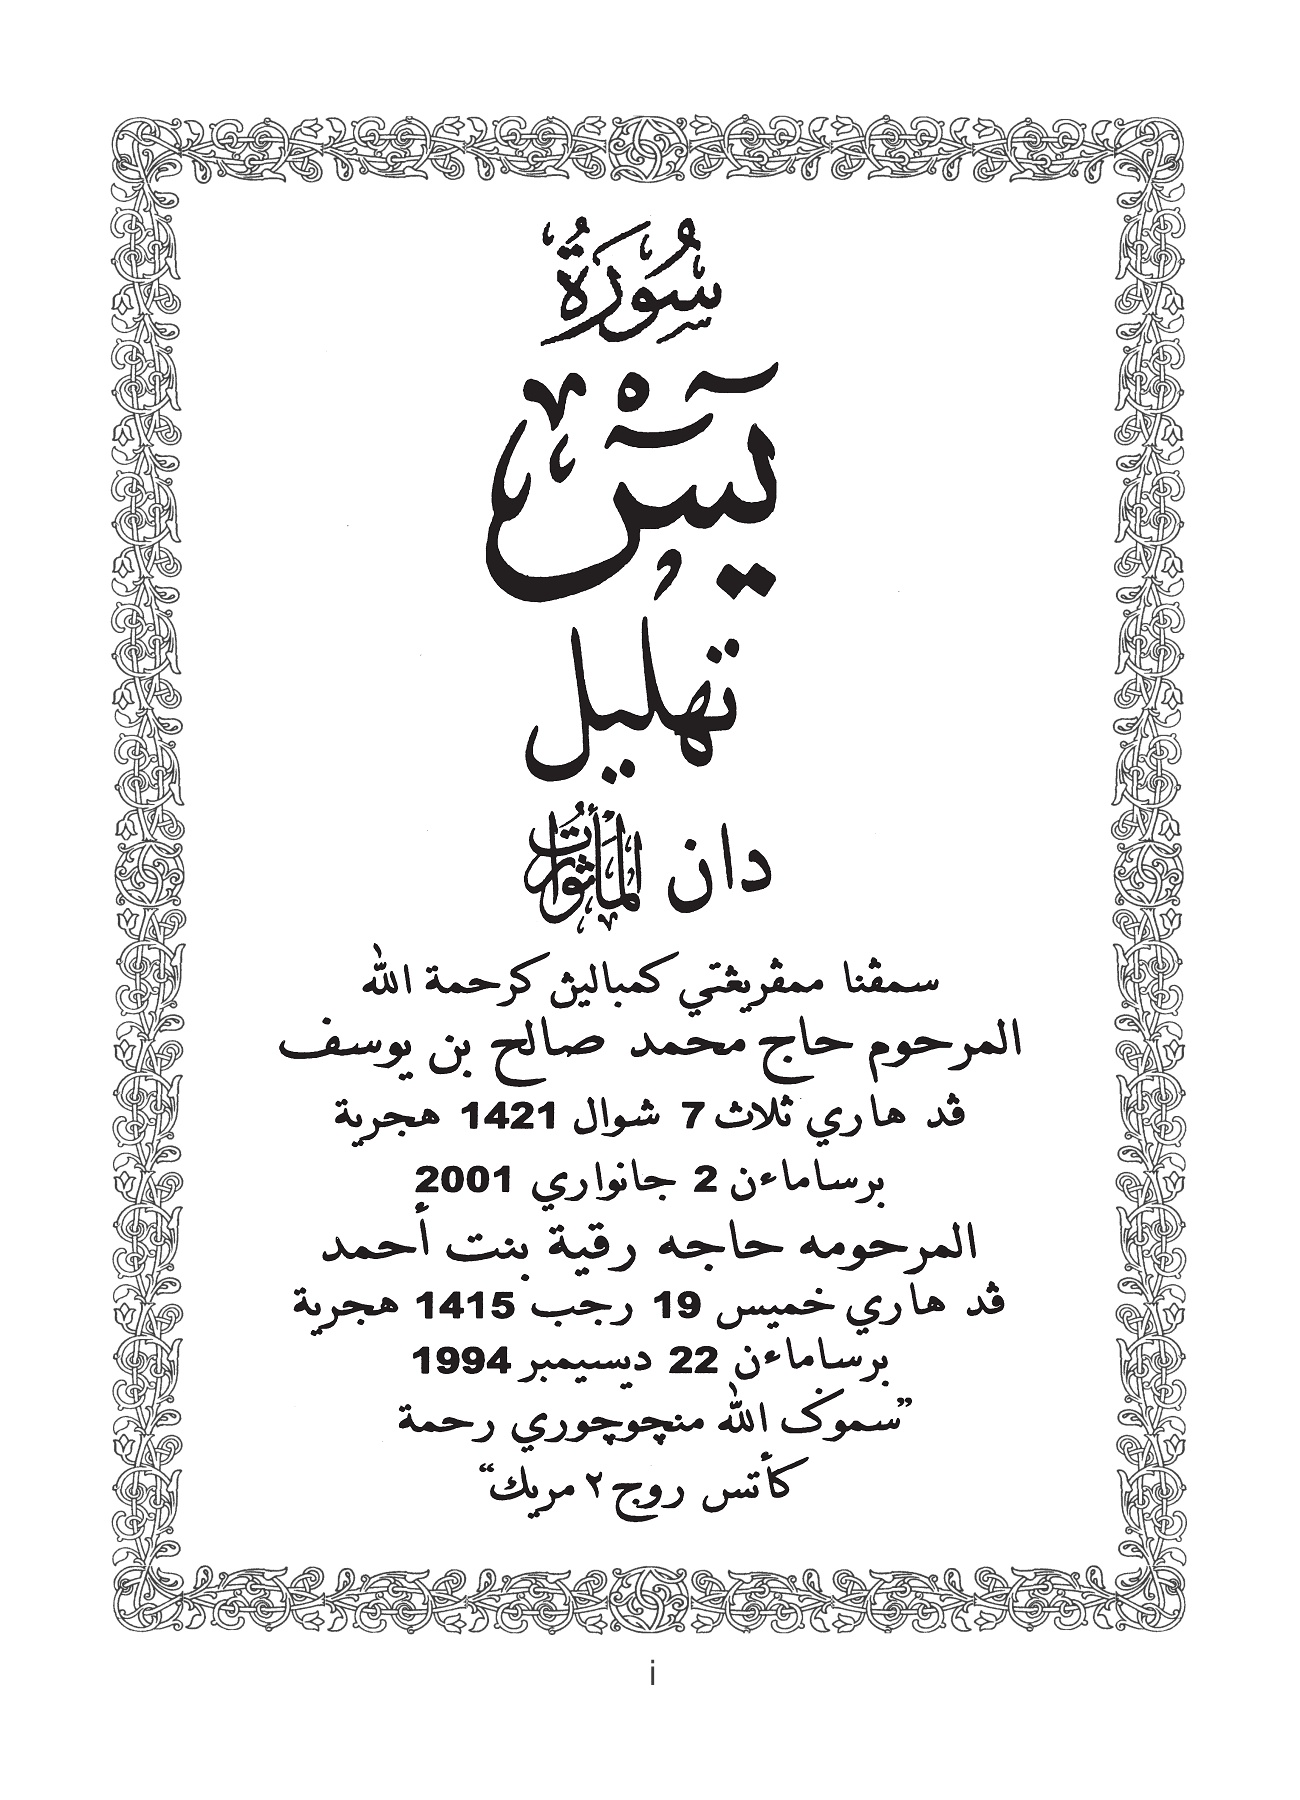 سُوْرَةُ
يٰسٓ
تهليل
دان المأثورات
سمڤنا ممڤريڠتي كمباليڽ كرحمة الله
المرحوم حاج محمد صالح بن يوسف
ڤد هاري ثلاث 7 شوال 1421 هجرية
برساماءن 2 جانواري 2001
المرحومه حاجه رقية بنت أحمد
ڤد هاري خميس 19 رجب 1415 هجرية
برساماءن 22 ديسيمبر 1994
”سموڬ الله منچوچوري رحمة
كأتس روح ٢ مريك“
i